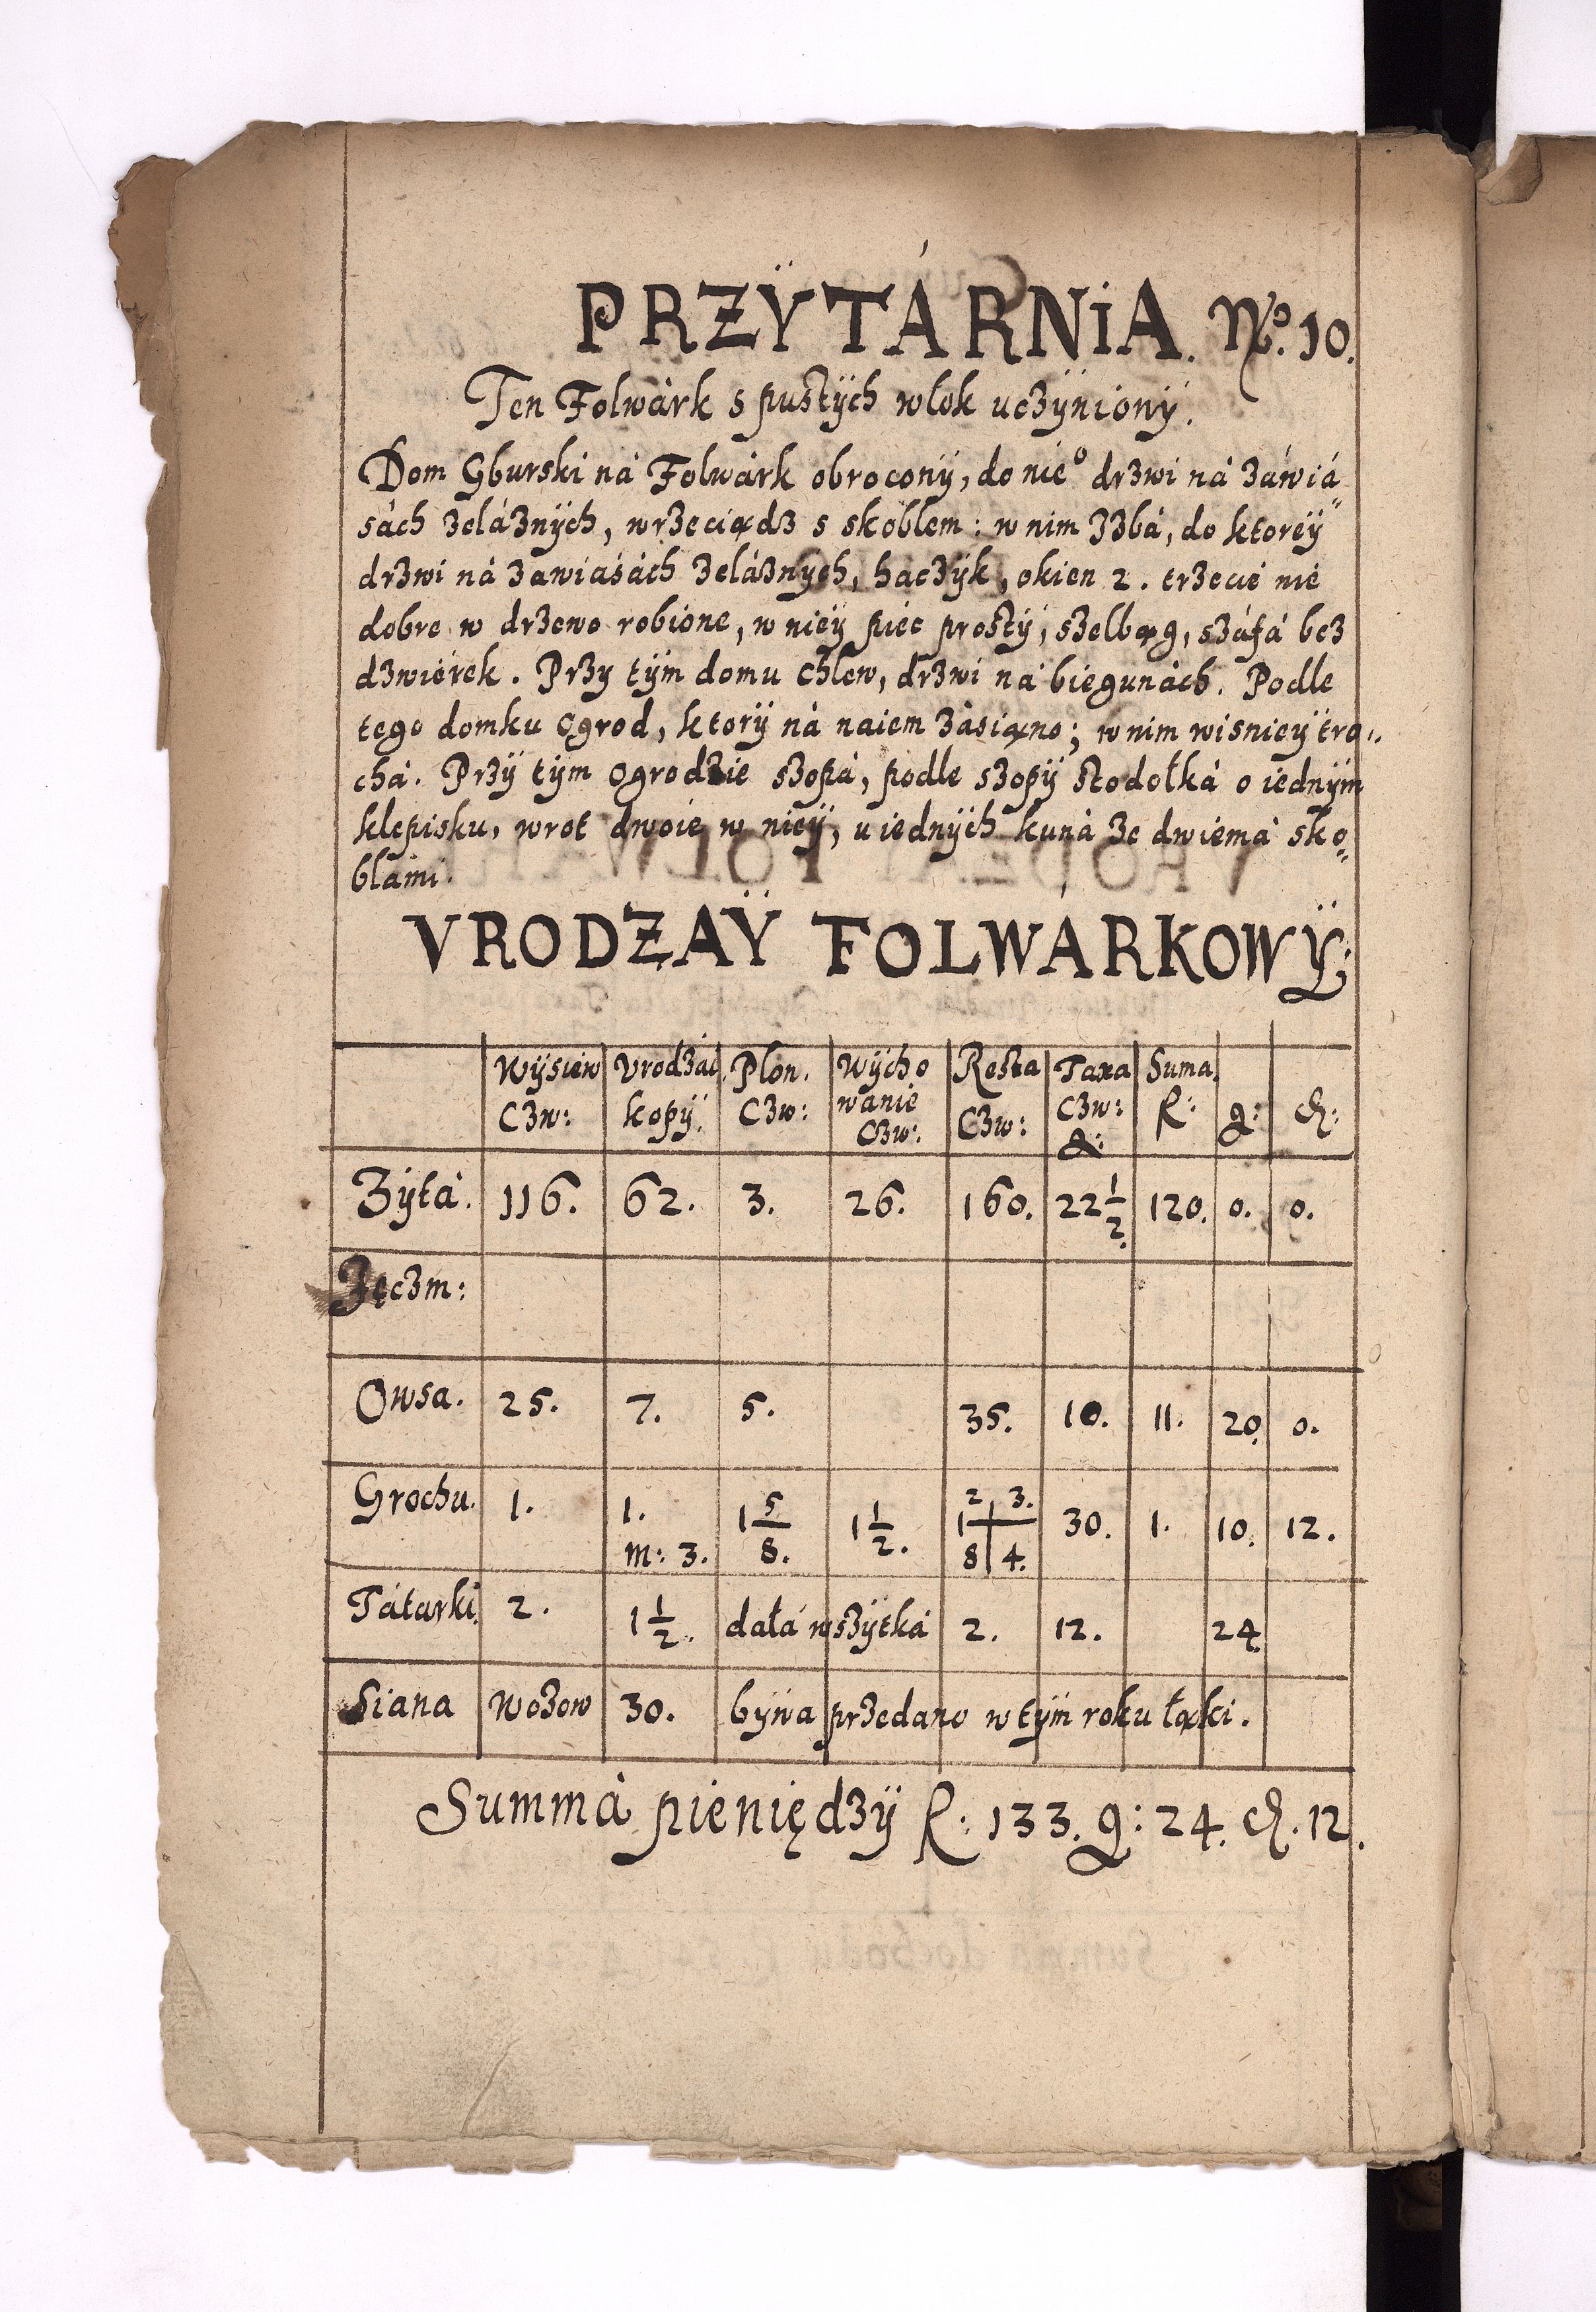 PRZÿTÁRNiA. No. 10.
Ten Folwàrk s pustÿch wlok uczÿnionÿ.
Dom Gburski nà Folwàrk obroconÿ, do nieº drzwi nà záwiá
sàch zeláznÿch, wrzeciądz s skoblem: w nim Jzbá, do ktoreÿ
drzwi nà zawiasàch zeláznÿch, haczÿk, okien 2. trzecie nie
dobre w drzewo robione, w nieÿ piec prostÿ, szelbąg, száfá bez
dzwierek. Przy tÿm domu chlew, drzwi ná biegunàch. Podle
tego domku ogrod, ktorÿ nà naiem zàsiąno; w nim wisnieÿ tro„
chá. Przÿ tÿm ogrodzie szopà, podle szopÿ stodołkà o iednÿm
klepisku, wrot dwoie w nieÿ, u iednÿch kunà ze dwiemà sko„
blámi.
VRODZAŸ FOLWÁRKOWŸ:
Wÿsiew Czw: Vrodzái kopÿ. Plon. Czw: Wÿchowanie Czw: Resta Czw: Taxa Czw: g: Suma. R: g: d:
Zÿtà. 116. 62. 3. 26. 160. 22 1/2. 120. 0. 0.
Jęczm:
Owsa. 25. 7. 5. 35. 10. 11. 20. 0.
Grochu. 1. 1. m: 3. 1 5/8. 1 1/2. 1 2/8 3/4. 30. 1. 10. 12.
Tátarki. 2. 1 1/2. dałá wszÿtká 2. 12. 24.
Siana Wozow 30. bÿwa przedano w tÿm roku łąki.
Summà pieniędzÿ R: 133. g: 24. d. 12.